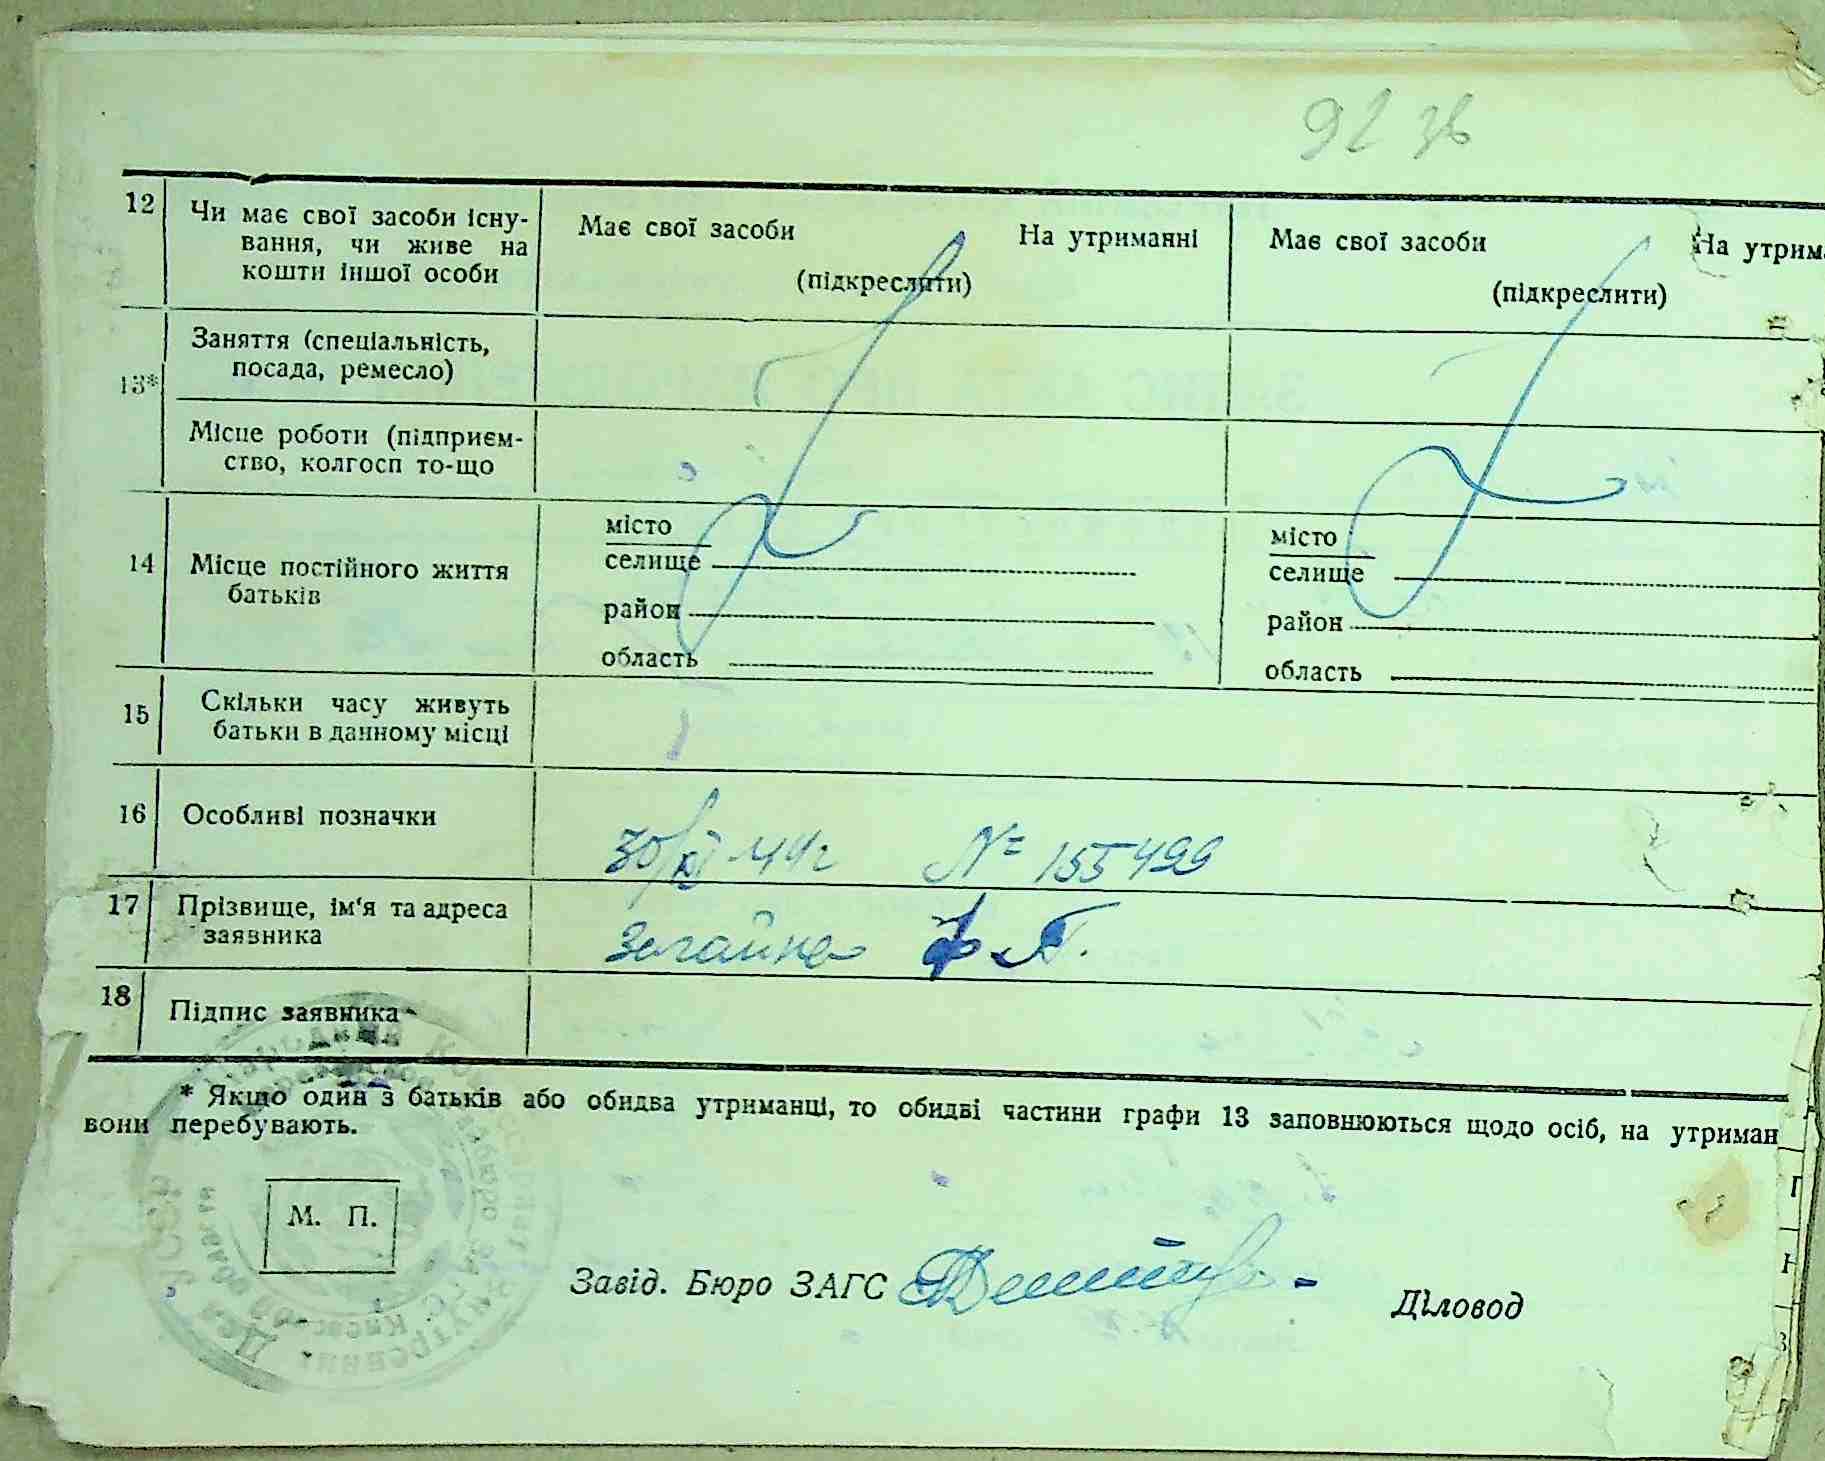 92 зв
12 Чи має свої засоби існу-
вання, чи живе на
кошти іншої особи
Має свої засоби На утриманні
(підкреслити)
Має свої засоби На утрима
(підкреслити)
13*
Заняття (спеціальність,
посада, ремесло)
Місце роботи (підприєм-
ство, колгосп то-що
14 Місце постійного життя
батьків
місто
селище
район
область
місто
селище
район
область
15 Скільки часу живуть
батьки в данному місці
16 Особливі позначки
№ 155499
17 Прізвище, ім'я та адреса
заявника
18 Підпис заявника
* Якщо один з батьків або обидва утриманці, то обидві частини графи 13 заповнюються щодо осіб, на утриман
вони перебувають.
М. П.
Завід. Бюро ЗАГС
Діловод